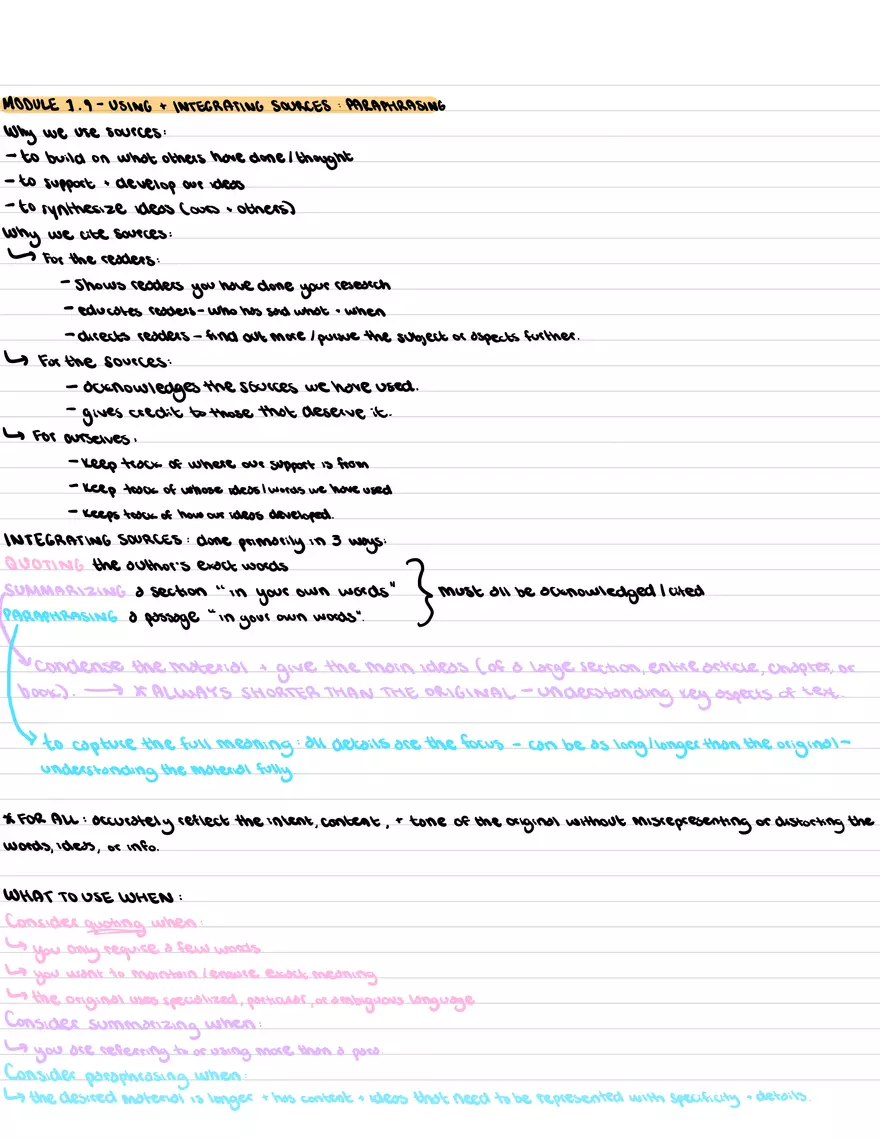 MODULE 1.9 - USING + INTEGRATING SOURCES : PARAPHRASING
Why we use sources:
- to build on what others have done / thought
- to support + develop our ideas
- to synthesize ideas (ours + others)
Why we cite sources:
↳ For the readers:
- Shows readers you have done your research
- educates readers - who has said what + when
- directs readers - find out more / pursue the subject or aspects further.
↳ For the sources:
- acknowledges the sources we have used.
- gives credit to those that deserve it.
↳ For ourselves:
- keep track of where our support is from
- keep track of whose ideas / words we have used
- keeps track of how our ideas developed.
INTEGRATING SOURCES: done primarily in 3 ways:
QUOTING the author's exact words
SUMMARIZING a section "in your own words" } must all be acknowledged / cited
PARAPHRASING a passage "in your own words".
condense the material + give the main ideas (of a large section, entire article, chapter, or
book). → * ALWAYS SHORTER THAN THE ORIGINAL - understanding key aspects of text.
to capture the full meaning: all details are the focus - can be as long/longer than the original -
understanding the material fully
* FOR ALL: accurately reflect the intent, content, + tone of the original without misrepresenting or distorting the
words, ideas, or info.
WHAT TO USE WHEN:
Consider quoting when:
↳ you only require a few words
↳ you want to maintain / ensure exact meaning
↳ the original uses specialized, particular, or ambiguous language
Consider summarizing when:
↳ you are referring to or using more than a para.
Consider paraphrasing when:
↳ the desired material is longer + has content + ideas that need to be represented with specificity + details.